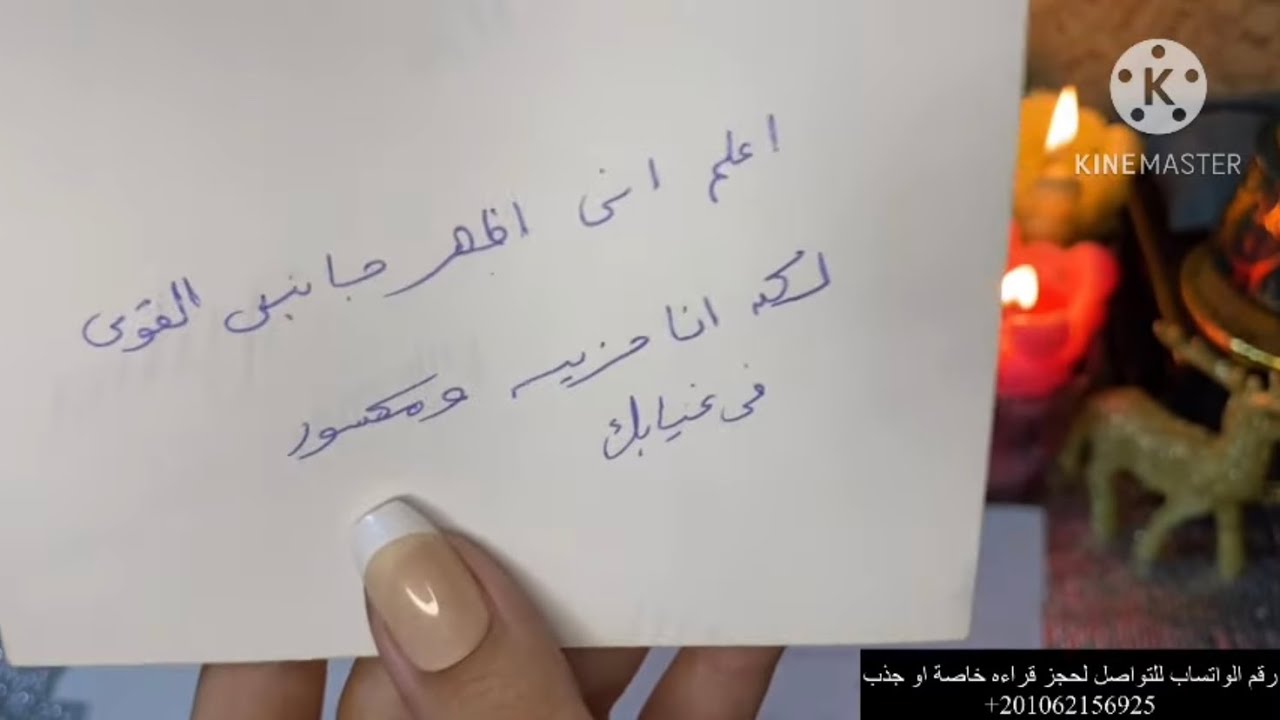 اعلم انى اظهر جانبى القوى
لكن انا حزين ومكسور
فى غيابك
K
KINEMASTER
رقم الواتساب للتواصل لحجز قراءه خاصة او جذب
+201062156925